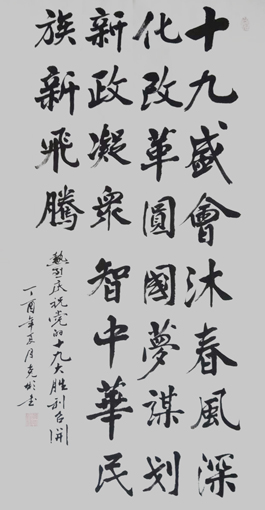 十九盛會沐春風深
化改革圓國夢謀划
新政凝衆智中華民
族新飛騰
熱烈庆祝党的十九大胜利召開
丁酉年